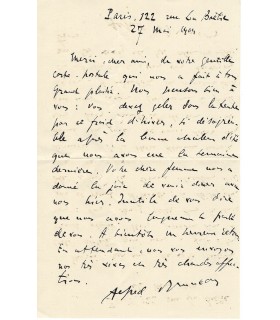 Paris, 122 rue La Boétie
27 Mai
Merci, cher ami, de votre gentille
carte-postale qui nous a fait à tous
grand plaisir. Nous pensons bien à
vous : vous devez geler sous la tente
par ce froid d'hiver, si désagré-
able après la bonne chaleur d'été
que nous avons eue la semaine
dernière. Votre chère femme nous a
donné la joie de venir dîner avec
nous hier. Inutile de vous dire
que nous avons longuement parlé
de vous. A bientôt un heureux retour
En attendant, nous vous envoyons
nos très vives et très chaudes affec-
tions.
Alfred Bruneau